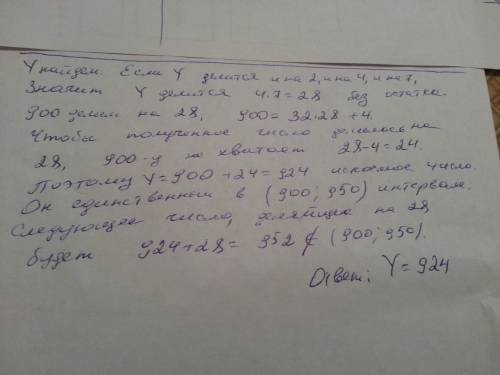 Y найдем. Если Y делится и на 2, и на 4, и на 7,
Значит Y делится 4·7=28 без остатка.
900 делим на 28, 900=32·28+4.
Чтобы полученное число делилось на
28, 900-у не хватает 28-4=24.
Поэтому Y=900+24=924 искомое число.
Он единственный в (900; 950) интервале.
Следующее число, делящиеся на 28
будет 924+28=952 ∉ (900; 950).
Ответ: Y=924